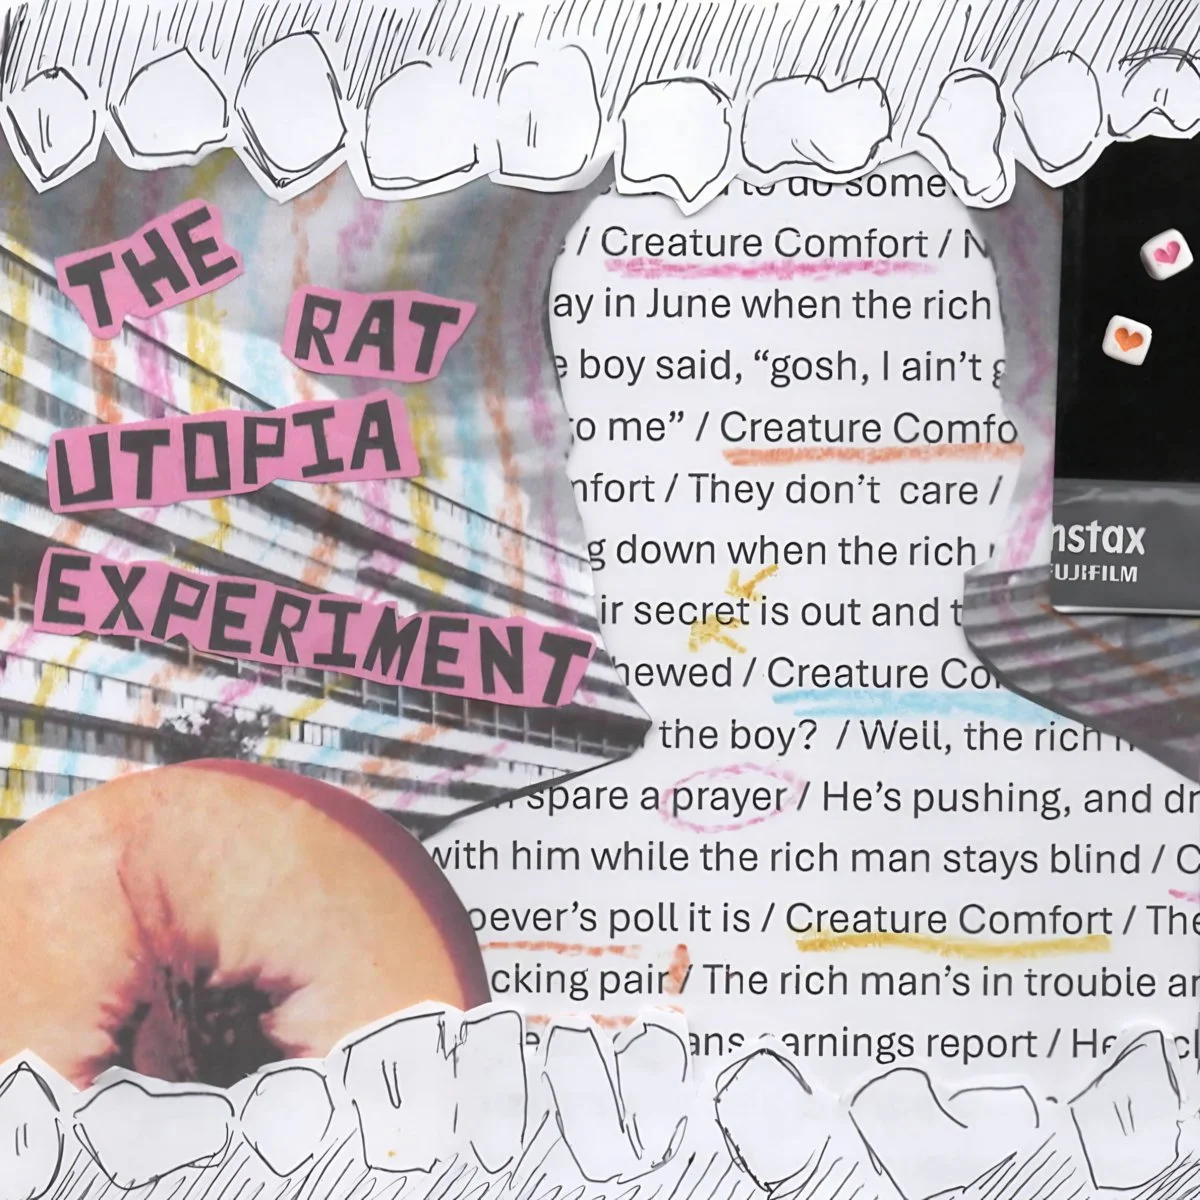 THE
RAT
UTOPIA
EXPERIMENT
to do some
/ Creature Comfort / N
ay in June when the rich
e boy said, “gosh, I ain’t g
to me” / Creature Comfo
nfort / They don’t care /
g down when the rich
ir secret is out and t
hewed / Creature Co
the boy? / Well, the rich
spare a prayer / He’s pushing, and dr
with him while the rich man stays blind / C
oever’s poll it is / Creature Comfort / The
cking pair / The rich man’s in trouble an
ans earnings report / He cl
instax
FUJIFILM